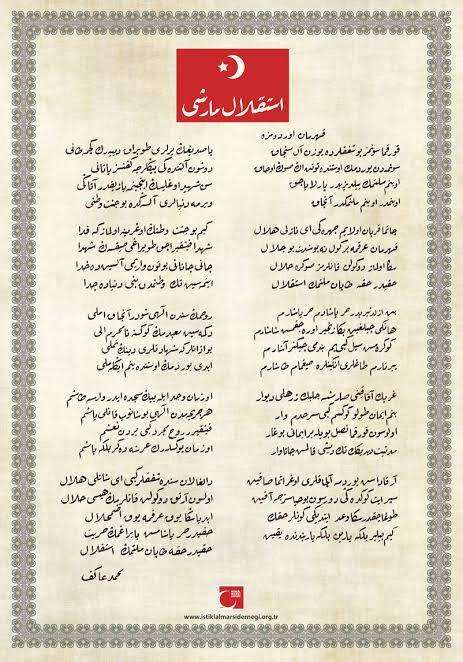 استقلال مارشى
قهرمان اوردومزه
قورقما سونمز بو شفقلرده يوزن آل سنجاق
سونمدن يوردمك اوستنده توتن اڭ صوڭ اوجاق
او بنم ملتمك ييلديزيدر پارلاياجق
او بنمدر او بنم ملتمكدر آنجاق
چاتما قربان اولايم چهره‌كى اى نازلى هلال
قهرمان عرقمه بر گول نه بو شدت بو جلال
سڭا اولماز دوكولن قانلرمز صوكره حلال
حقيدر حقه طاپان ملتمك استقلال
بن ازلدنبريدر حر ياشادم حر ياشارم
هانگى چيلغين بڭا زنجير اوره‌جقمش شاشارم
كوكره‌مش سيل كبى‌يم بندمى چيگنر آشارم
ييرتارم طاغلرى انگينلره صيغمام طاشارم
غربك آفاقنى صارمشسه چليك زرهلى ديوار
بنم ايمان طولو گوكسم كبى سرحدم وار
اولوسون قورقما ناصل بويله بر ايمانى بوغار
مدنيت ديديگك تك ديشى قالمش جاناوار
آرقاداش يوردمه آلچاقلرى اوغراتما صاقين
سپر ايت گوده‌كى دورسون بو حياسزجه آقين
طوغاجقدر سڭا وعد ايتديگى گونلر حقك
كيم بيلير بلكه يارين بلكه ياريندنده يقين
باصديغك يرلرى طوپراق دييه‌رك گچمه طانى
دوشون آلتنده‌كى بيڭلرجه كفنسز ياتانى
سن شهيد اوغليسك اينجيتمه يازيقدر آتاڭى
ويرمه دنيالرى آلسه‌كده بو جنت وطنى
كيم بو جنت وطنك اوغرينه اولماز كه فدا
شهدا فيشقيراجق طوپراغى صيقسه‌ك شهدا
جانى جانانى بوتون واريمى آلسين‌ده خدا
ايتمسين تك وطنمدن بنى دنياده جدا
روحمك سندن الهى شودر آنجاق املى
دگمه‌سين معبدمك گوكسنه نامحرم الى
بو اذانلر كه شهادتلرى دينك تملى
ابدى يوردمك اوستنده بنم ايڭله‌ملى
او زمان وجد ايله بيڭ سجده ايدر وارسه طاشم
هر جريحه‌مدن الهى بوشانوب قانلى ياشم
فيشقيرر روح مجرد كبى يردن نعشم
او زمان يوكسله‌رك عرشه دگر بلكه باشم
دالغالان سنده شفقلر كبى اى شانلى هلال
اولسون آرتق دوكولن قانلرمك هپسى حلال
ابديا سڭا يوق عرقمه يوق اضمحلال
حقيدر حر ياشامش بايراغمك حريت
حقيدر حقه طاپان ملتمك استقلال
محمد عاكف
www.istiklalmarsidernegi.org.tr